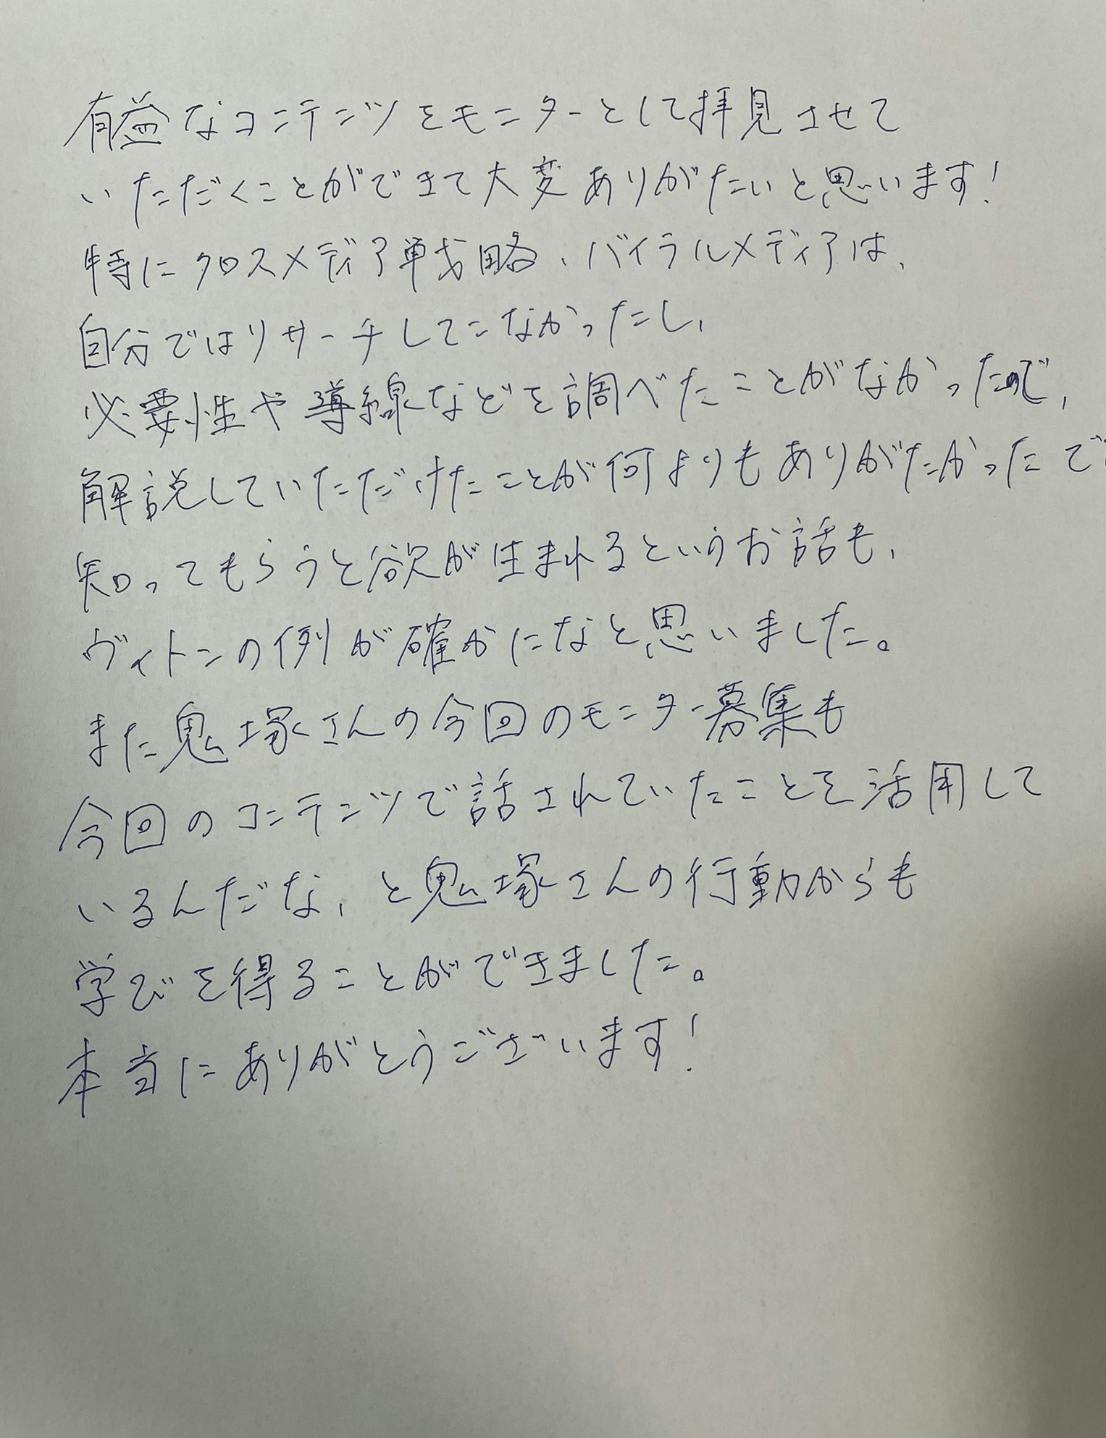 有益なコンテンツをモニターとして拝見させて
いただくことができて大変ありがたいと思います!
特にクロスメディア戦略、バイラルメディアは、
自分ではリサーチしてこなかったし、
必要性や導線などを調べたことがなかったので、
解説していただけたことが何よりもありがたかったで
知ってもらうと欲が生まれるというお話も、
ヴィトンの例が確かになと思いました。
また鬼塚さんの今回のモニター募集も
今回のコンテンツで話されていたことを活用して
いるんだな、と鬼塚さんの行動からも
学びを得ることができました。
本当にありがとうございます!